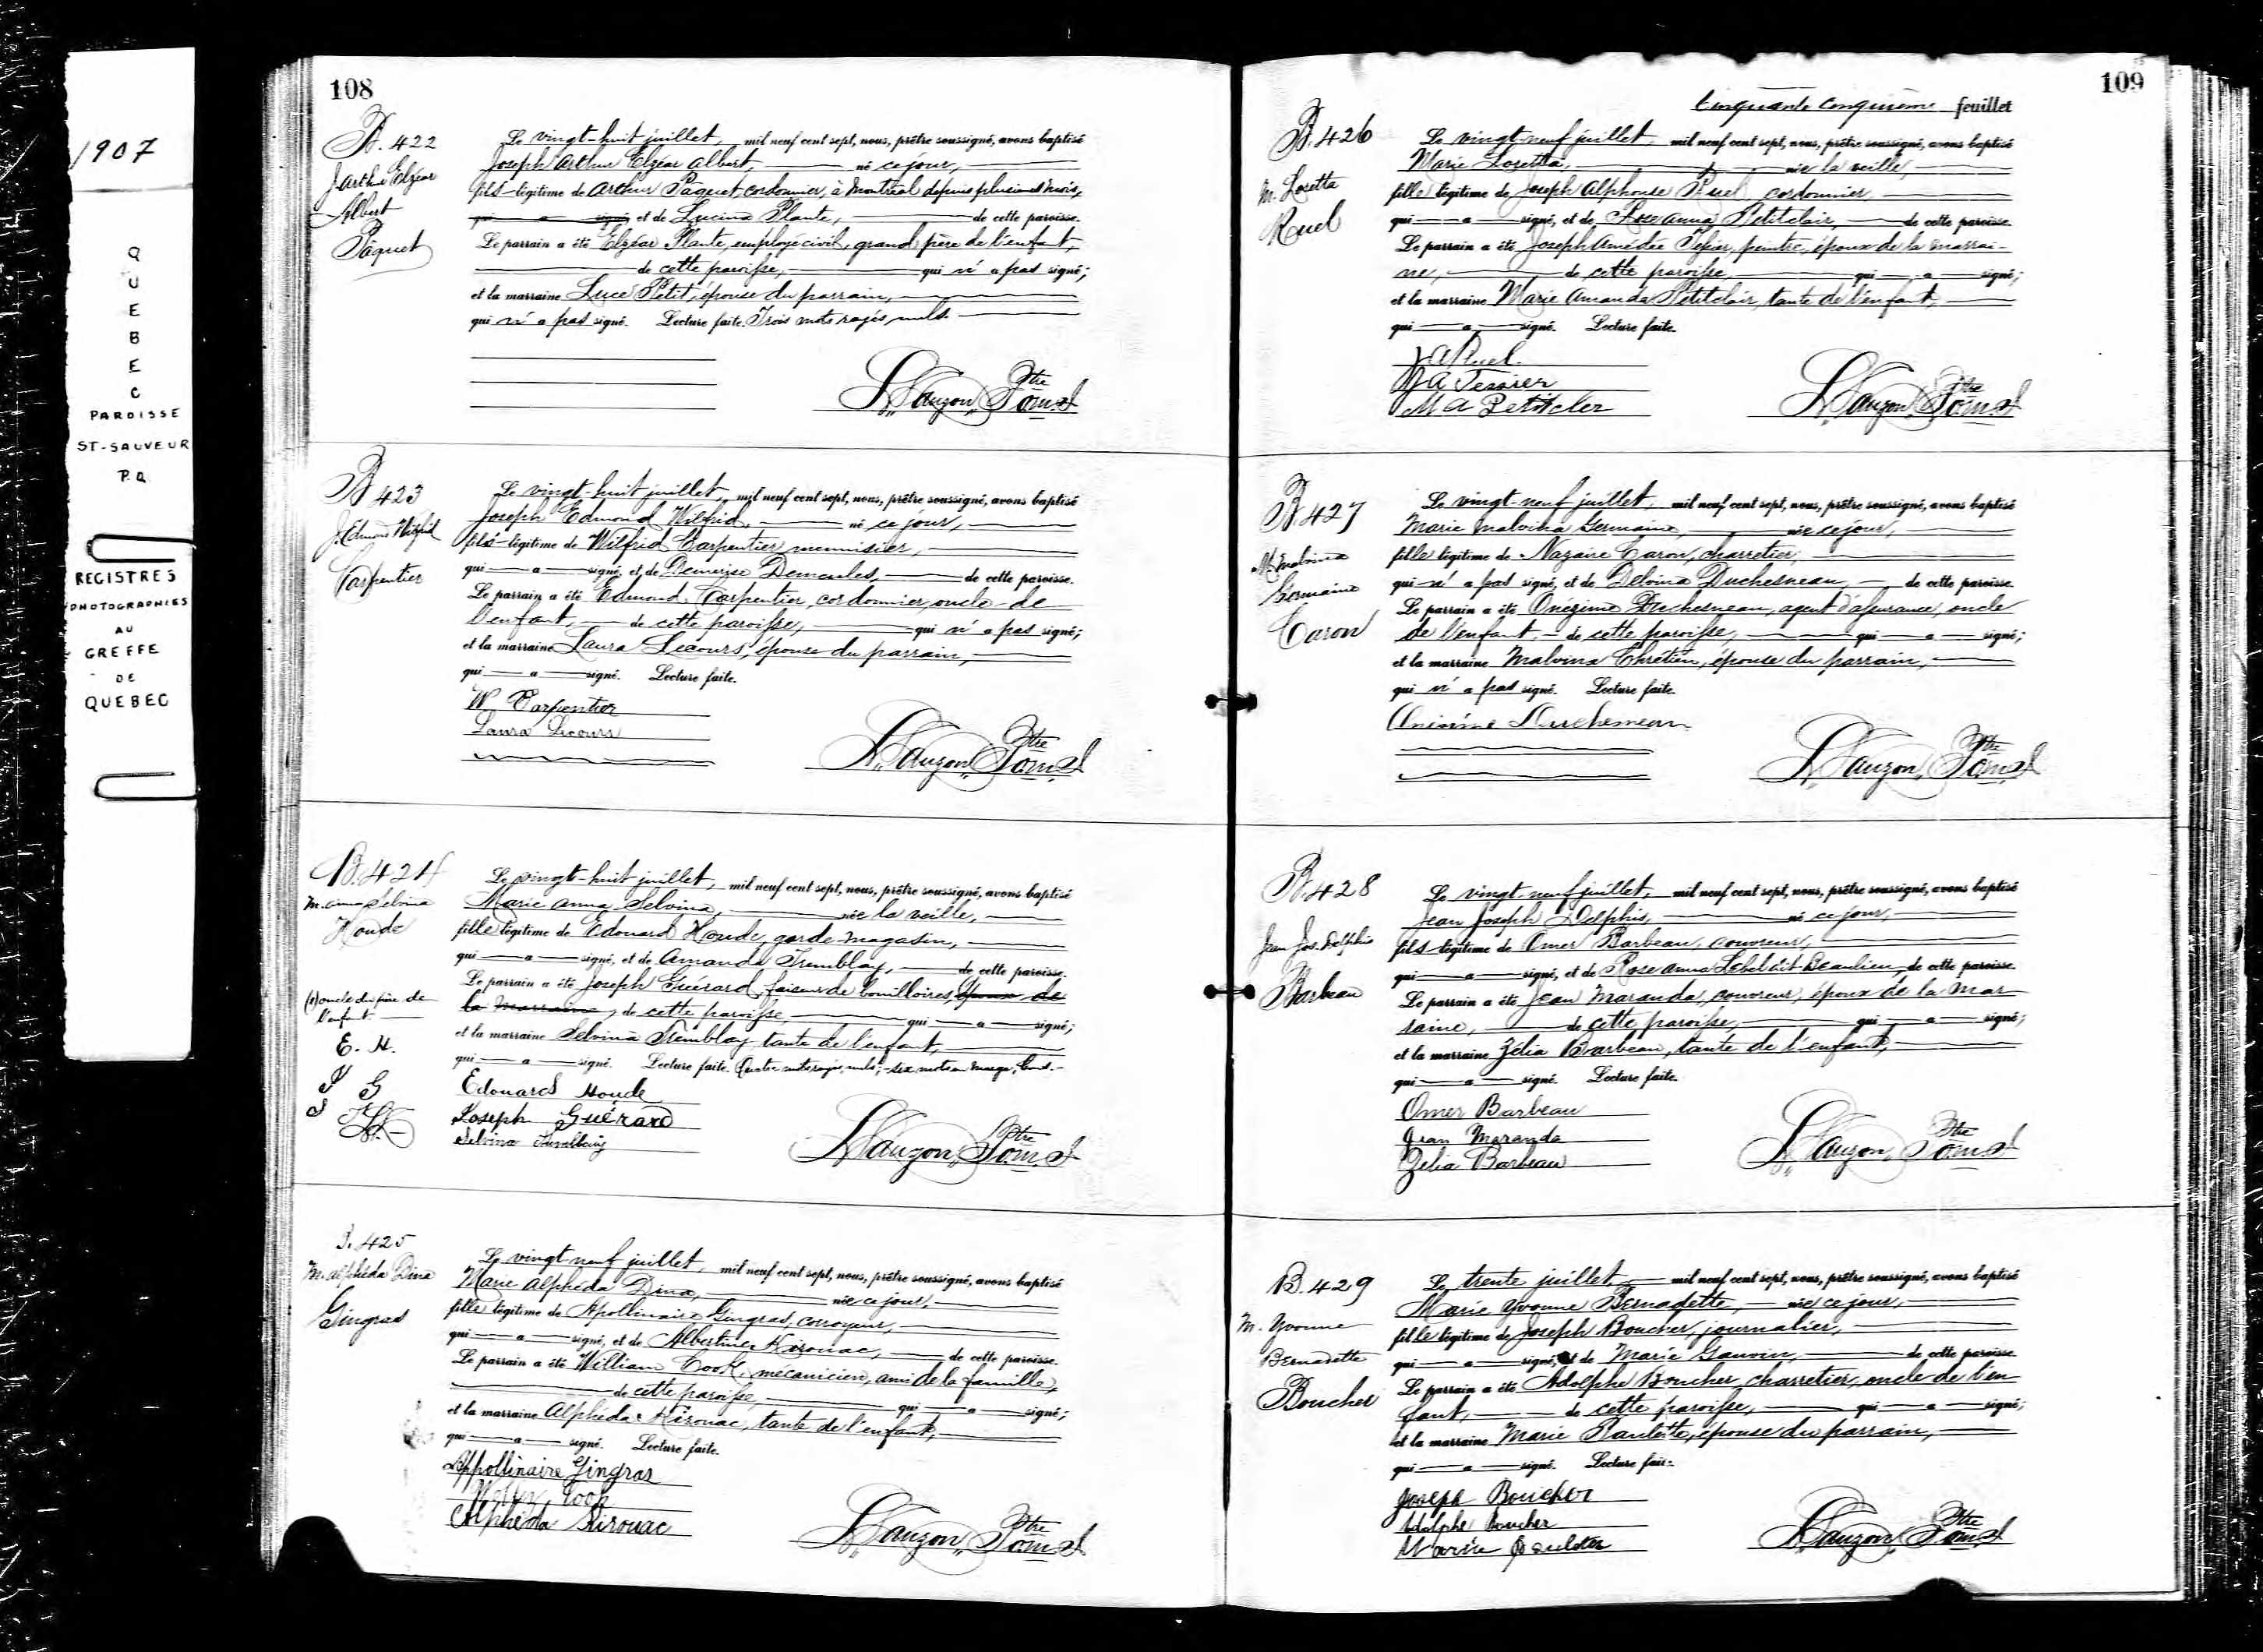 1907
QUEBEC
PAROISSE
ST-SAUVEUR
P.Q
REGISTRES
PHOTOGRAPHIES
AU
GREFFE
DE
QUEBEC
108
B. 422
J. Arthur Elzéar
Albert
Paquet
Le vingt-huit juillet, mil neuf cent sept, nous, prêtre soussigné, avons baptisé
Joseph Arthur Elzéar Albert, né ce jour,
fils légitime de Arthur Paquet, cordonnier, à Montréal depuis plusieurs mois,
qui a signé, et de Lucina Plante, de cette paroisse.
Le parrain a été Elzéar Plante, employé civil, grand père de l'enfant,
de cette paroisse, qui n'a pas signé;
et la marraine Luce Petit, épouse du parrain,
qui n'a pas signé. Lecture faite. Trois mots rayés nuls.
L. N. Lauzon, Ptre O.M.I.
B 423
J. Edmond Wilfrid
Carpentier
Le vingt-huit juillet, mil neuf cent sept, nous, prêtre soussigné, avons baptisé
Joseph Edmond Wilfrid, né ce jour,
fils légitime de Wilfrid Carpentier menuisier,
qui a signé, et de Demerise Demeules, de cette paroisse.
Le parrain a été Edmond Carpentier, cordonnier, oncle de
l'enfant, de cette paroisse, qui n'a pas signé;
et la marraine Laura Lecours, épouse du parrain,
qui a signé. Lecture faite.
W. Carpentier
Laura Lecours
Lauzon, Ptre O.M.I.
B. 424
M. Anna Selvina
Houde
(x) oncle du père de
l'enfant
E. H.
J G
S T
Le vingt-huit juillet, mil neuf cent sept, nous, prêtre soussigné, avons baptisé
Marie Anna Selvina, née la veille,
fille légitime de Edouard Houde, garde-magasin,
qui a signé, et de Amanda Tremblay, de cette paroisse.
Le parrain a été Joseph Guérard, faiseur de bouilloires, époux de
la marraine, de cette paroisse qui a signé;
et la marraine Selvina Tremblay tante de l'enfant,
qui a signé. Lecture faite. Quatre mots rayés, nuls; six mots en marge, bons.
Edouard Houde
Joseph Guérard
Selvina Tremblay
Lauzon, Ptre O.M.I.
B. 425
M. Alphéda Dina
Gingras
Le vingt-neuf juillet, mil neuf cent sept, nous, prêtre soussigné, avons baptisé
Marie Alphéda Dina, née ce jour,
fille légitime de Apollinaire Gingras, corroyeur,
qui a signé, et de Albertine Kirouac, de cette paroisse.
Le parrain a été William Cook, mécanicien, ami de la famille,
de cette paroisse, qui a signé;
et la marraine Alphéda Kirouac, tante de l'enfant,
qui a signé. Lecture faite.
Appollinaire Gingras
Cook
Alphéda Kirouac
Lauzon, Ptre O.M.I.
109
Cinquante cinquième feuillet
B. 426
M. Lozetta
Ruel
Le vingt-neuf juillet, mil neuf cent sept, nous, prêtre soussigné, avons baptisé
Marie Lozetta, née la veille,
fille légitime de Joseph Alphonse Ruel, cordonnier,
qui a signé, et de Rose anna Petitclair, de cette paroisse.
Le parrain a été Joseph Amédée Tessier, peintre, époux de la marrai-
ne, de cette paroisse, qui a signé;
et la marraine Marie Amanda Petitclair, tante de l'enfant,
qui a signé. Lecture faite.
J A Ruel.
J A Tessier
M A Petitcler
Lauzon, Ptre O.M.I.
B. 427
M. Malvina
Germaine
Caron
Le vingt-neuf juillet, mil neuf cent sept, nous, prêtre soussigné, avons baptisé
Marie Malvina Germaine, née ce jour,
fille légitime de Nazaire Caron, charretier,
qui n'a pas signé, et de Delvina Duchesneau, de cette paroisse.
Le parrain a été Onézime Duchesneau, agent d'assurance, oncle
de l'enfant, de cette paroisse, qui a signé;
et la marraine Malvina Chrétien, épouse du parrain,
qui n'a pas signé. Lecture faite.
Onésime Duchesneau
Lauzon, Ptre O.M.I.
B. 428
Jean Jos. Delphis
Barbeau
Le vingt-neuf juillet, mil neuf cent sept, nous, prêtre soussigné, avons baptisé
Jean Joseph Delphis, né ce jour,
fils légitime de Omer Barbeau, couvreur,
qui a signé, et de Rose Anna Lebel dit Beaulieu, de cette paroisse.
Le parrain a été Jean Maranda, couvreur, époux de la mar
raine, de cette paroisse, qui a signé;
et la marraine Zélia Barbeau, tante de l'enfant,
qui a signé. Lecture faite.
Omer Barbeau
Jean Maranda
Zelia Barbeau
Lauzon, Ptre O.M.I.
B. 429
M. Yvonne
Bernadette
Boucher
Le trente juillet, mil neuf cent sept, nous, prêtre soussigné, avons baptisé
Marie Yvonne Bernadette, née ce jour,
fille légitime de Joseph Boucher, journalier,
qui a signé, et de Marie Gauvin, de cette paroisse.
Le parrain a été Adolphe Boucher, charretier, oncle de l'en
fant, de cette paroisse, qui a signé;
et la marraine Marie Paulette, épouse du parrain,
qui a signé. Lecture faite.
Joseph Boucher
Adolphe Boucher
Marie
Lauzon, Ptre O.M.I.